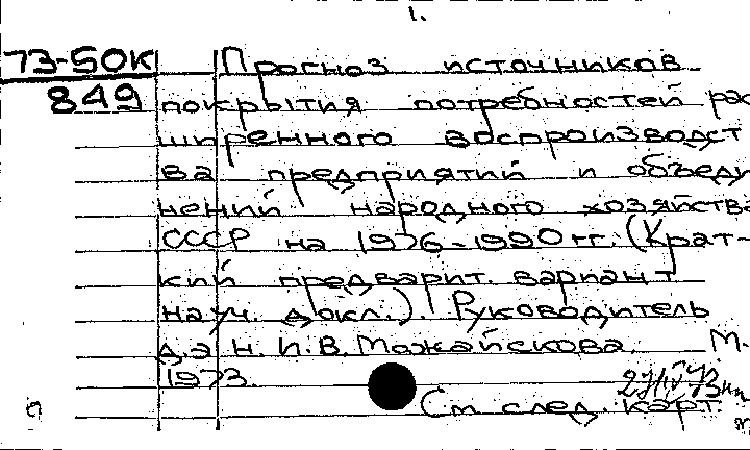 1.
73-50К Прогноз источников
849 покрытия потребностей рас
ширенного воспроизводст
ва предприятий и объеди
нений народного хозяйства
СССР на 1976-1990 гг. (Крат-
кий предварит. вариант
науч. докл.). Руководитель
д.э н. И.В. Можайскова. М.
1973.
См след. карт.